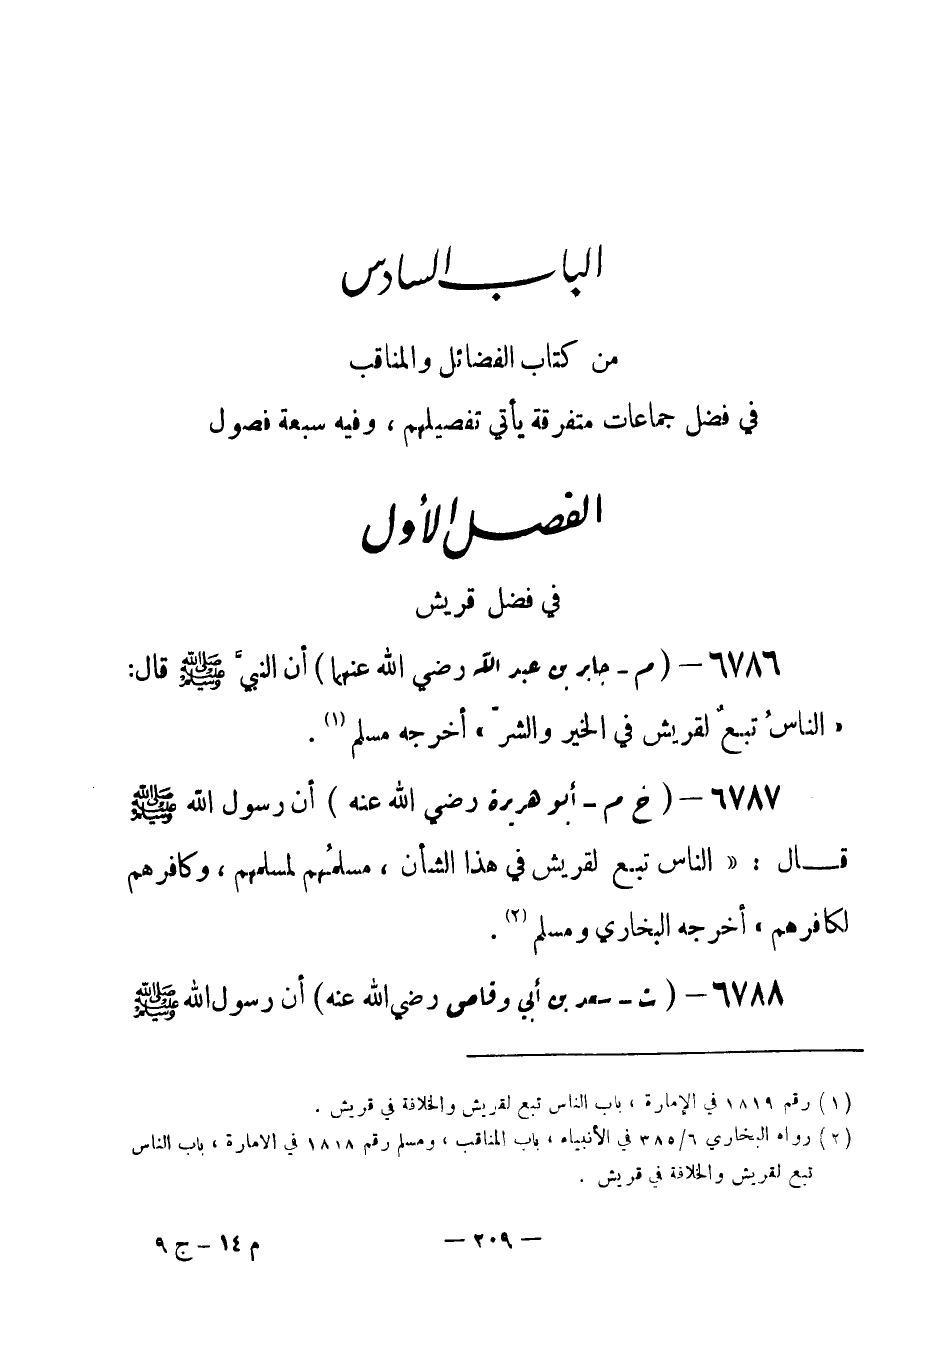 الباب السادس
من كتاب الفضائل والمناقب
في فضل جماعات متفرقة يأتي تفصيلهم ، وفيه سبعة فصول
الفصل الأول
في فضل قريش
٦٧٨٦ – ( م - جابر بن عبد الله رضي الله عنهما ) أن النبيَّ ﷺ قال:
« الناسُ تبعٌ لقريش في الخير والشرّ » أخرجه مسلم (١) .
٦٧٨٧ – ( خ م - أبو هريرة رضي الله عنه ) أن رسول الله ﷺ
قــال : « الناس تبع لقريش في هذا الشأن ، مسلمُهم لمسلمهم ، وكافرهم
لكافرهم » أخرجه البخاري ومسلم (٢) .
٦٧٨٨ – ( ت - سعد بن أبي وقاص رضي الله عنه ) أن رسول الله ﷺ
(١) رقم ١٨١٩ في الإمارة ، باب الناس تبع لقريش والخلافة في قريش .
(٢) رواه البخاري ٣٨٥/٦ في الأنبياء ، باب المناقب ، ومسلم رقم ١٨١٨ في الامارة ، باب الناس
تبع لقريش والخلافة في قريش .
– ٢٠٩ –
م ١٤ – ج ٩